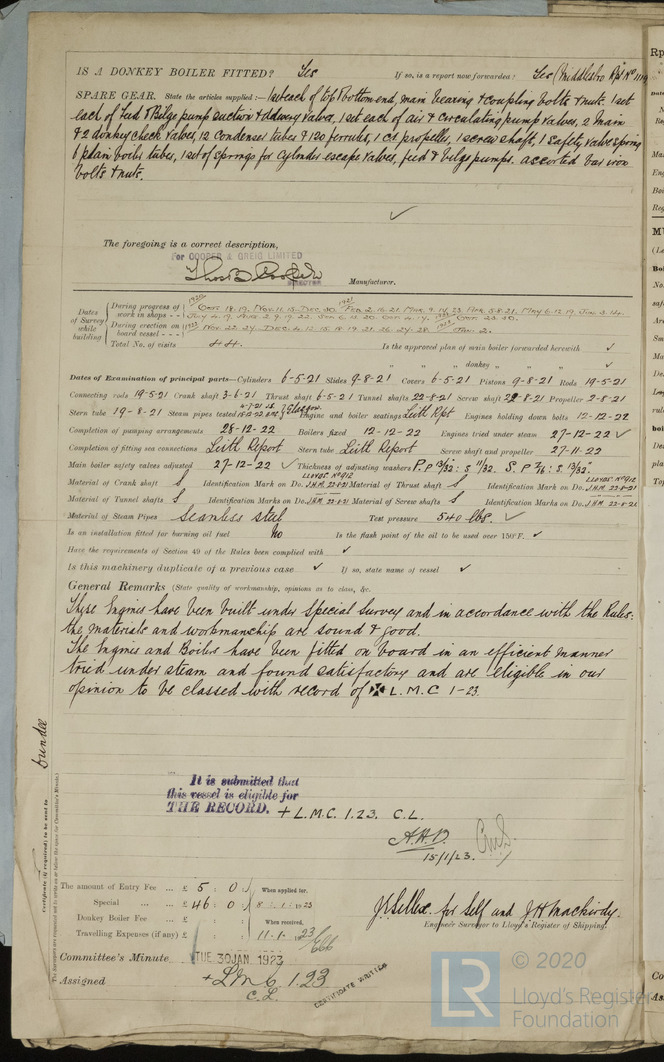 IS A DONKEY BOILER FITTED? Yes If so, is a report now forwarded? Yes (Middlesbro Rpt No
SPARE GEAR. State the articles supplied:— 1 set each of top & bottom end, main bearing & coupling bolts & nuts. 1 set
each of Feed & Bilge pump suction & delivery valves, 1 set each of air & Circulating pump valves, 2 main
& 2 donkey check valves, 12 Condenser tubes & 120 ferrules, 1 C.I. propeller, 1 screw shaft, 1 safety valve spring
6 plain boiler tubes, 1 set of springs for cylinder escape valves, feed & bilge pumps. assorted bar iron
bolts & nuts.
The foregoing is a correct description,
For COOPER & GREIG LIMITED
DIRECTOR Manufacturer.
Dates of Survey while building
During progress of work in shops - - 1920 Oct. 18. 19. Nov. 11. 15. Dec. 30. 1921 Feb. 2. 16. 21. Mar. 9. 14. 23. Apr. 5. 8. 21. May 6. 12. 19. Jun. 3. 14.
During erection on board vessel - - - 1922 Nov. 22. 27. Dec. 4. 12. 15. 18. 19. 21. 26. 27. 28. 1923 Jan. 2.
Total No. of visits 44. Is the approved plan of main boiler forwarded herewith ✓
" " " donkey " " " ✓
Dates of Examination of principal parts—Cylinders 6-5-21 Slides 9-8-21 Covers 6-5-21 Pistons 9-8-21 Rods 19-5-21
Connecting rods 19-5-21 Crank shaft 3-6-21 Thrust shaft 6-5-21 Tunnel shafts 22-8-21 Screw shaft 22-8-21 Propeller 2-8-21
Stern tube 19-8-21 Steam pipes tested Glasgow Engine and boiler seatings Leith Rpt Engines holding down bolts 12-12-22
Completion of pumping arrangements 28-12-22 Boilers fixed 12-12-22 Engines tried under steam 27-12-22 ✓
Completion of fitting sea connections Leith Report Stern tube Leith Report Screw shaft and propeller 27-11-22
Main boiler safety valves adjusted 27-12-22 ✓ Thickness of adjusting washers P. P 13/32: S 11/32. S. P 7/16: S 13/32.
Material of Crank shaft S Identification Mark on Do. LLOYDS No 912 J.H.M. 22-8-21 Material of Thrust shaft S Identification Mark on Do. LLOYDS No 912 J.H.M. 22-8-21
Material of Tunnel shafts S Identification Marks on Do. J.H.M. 22-8-21 Material of Screw shafts S Identification Marks on Do. J.H.M. 22-8-21
Material of Steam Pipes Seamless steel Test pressure 540 lbs. ✓
Is an installation fitted for burning oil fuel No Is the flash point of the oil to be used over 150°F. ✓
Have the requirements of Section 49 of the Rules been complied with ✓
Is this machinery duplicate of a previous case ✓ If so, state name of vessel ✓
General Remarks (State quality of workmanship, opinions as to class, &c.
These Engines have been built under Special Survey and in accordance with the Rules:
the materials and workmanship are sound & good.
The Engines and Boilers have been fitted on board in an efficient manner
tried under steam and found satisfactory and are eligible in our
opinion to be classed with record of ✠ L. M. C 1-23.
It is submitted that
this vessel is eligible for
THE RECORD. + L.M.C. 1.23. C.L.
15/1/23.
Dundee
Certificate (if required) to be sent to
The amount of Entry Fee ... £ 5 : 0 : When applied for,
Special ... £ 46 : 0 : 8 . 1 . 1923
Donkey Boiler Fee ... £ : : When received,
Travelling Expenses (if any) £ : : 11. 1. 1923
J. Sellex. for Self and J.H. Mackirdy.
Engineer Surveyor to Lloyd's Register of Shipping.
Committee's Minute TUE. 30 JAN. 1923
Assigned + L.M.C. 1.23
C. L.
CERTIFICATE WRITTEN
LR © 2020
Lloyd's Register
Foundation